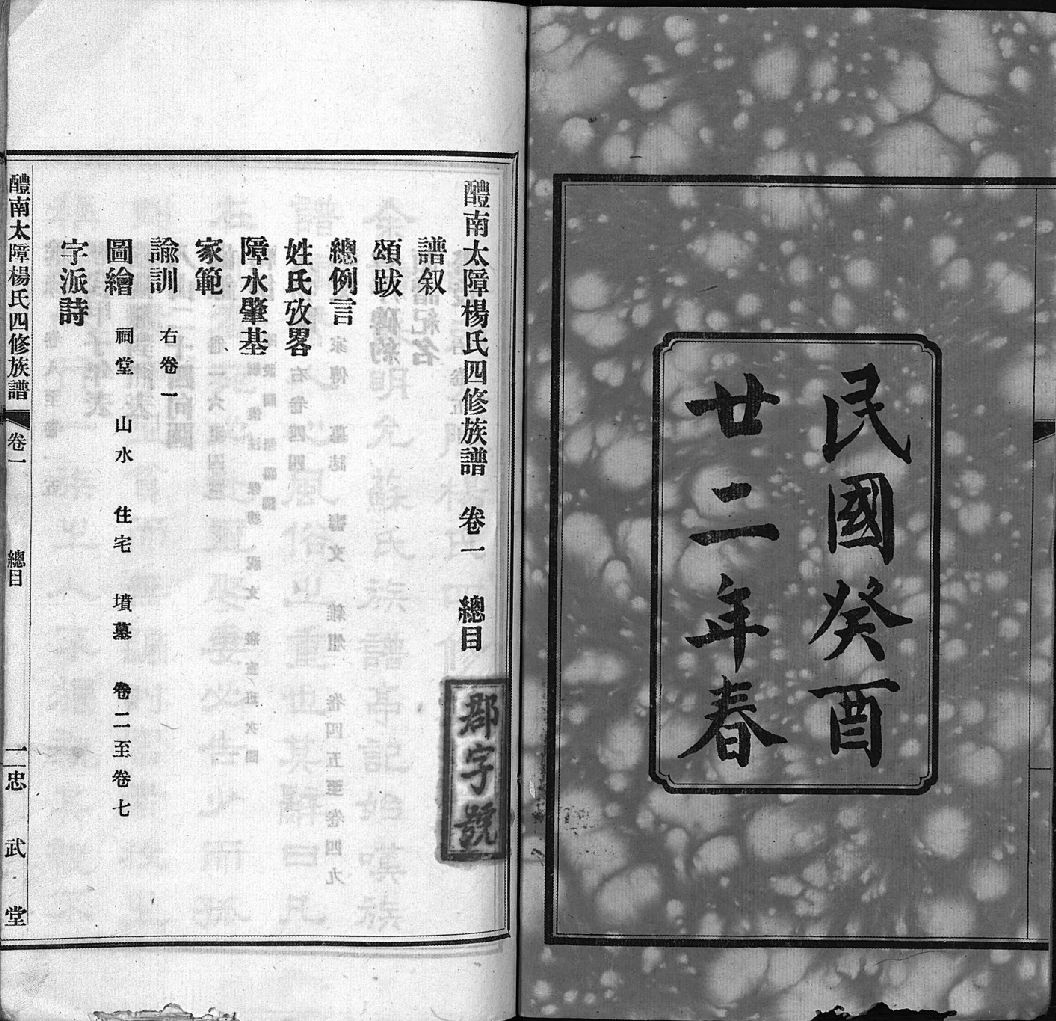 民國癸酉
廿二年春
醴南太障楊氏四修族譜 卷一 總目
郡字號
譜叙
頌跋
總例言
姓氏攷畧
障水肇基
家範
諭訓 右卷一
圖繪 祠堂 山水 住宅 墳墓 卷二至卷七
字派詩
醴南太障楊氏四修族譜 卷一 總目 一 忠武堂